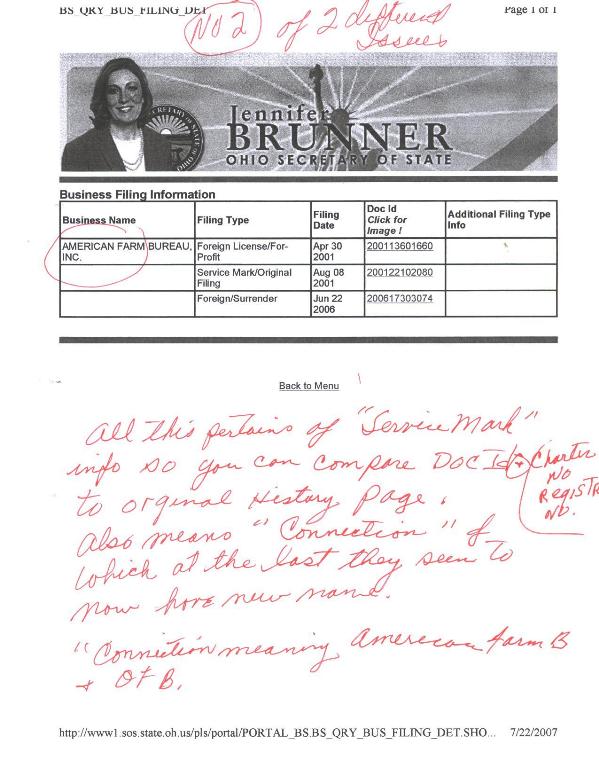 BS_QRY_BUS_FILING_DET
Page 1 of 1
NO 2 of 2 different
Issues
Jennifer
BRUNNER
OHIO SECRETARY OF STATE
Business Filing Information
Business Name Filing Type Filing Date Doc Id Click for Image ! Additional Filing Type Info
AMERICAN FARM BUREAU, INC. Foreign License/For-Profit Apr 30 2001 200113601660
Service Mark/Original Filing Aug 08 2001 200122102080
Foreign/Surrender Jun 22 2006 200617303074
Back to Menu
All this pertains of "Service Mark"
info so you can compare Doc Id + Charter
No
Registr
No.
to orginal History Page.
Also means "Connection" of
which at the last they seen to
now have new name.
"Connection meaning American Farm B
+ OFB.
http://www1.sos.state.oh.us/pls/portal/PORTAL_BS.BS_QRY_BUS_FILING_DET.SHO... 7/22/2007